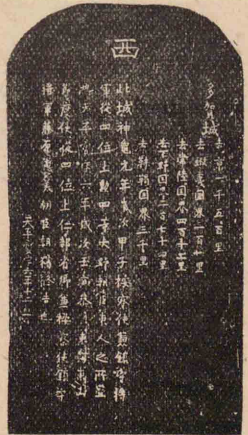 西
多賀城
去京一千五百里
去蝦夷國界一百廿里
去常陸國界四百十二里
去下野國界二百七十四里
去靺鞨國界三千里
此城神龜元年歲次甲子按察使兼鎭守將
軍從四位上勳四等大野朝臣東人之所置
也天平寶字六年歲次壬寅參議東海東山
節度使從四位上仁部省卿兼按察使鎭守
將軍藤原惠美朝臣朝獦修造也
天平寶字六年十二月一日